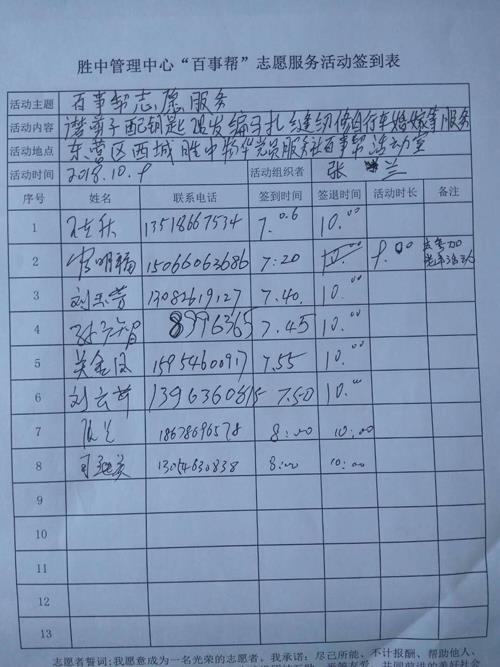 胜中管理中心“百事帮”志愿服务活动签到表
活动主题 百事帮志愿服务
活动内容 磨剪子配钥匙理发编手扎缝纫修自行车婚嫁等服务
活动地点 东营区西城胜中物华党员服务社百事帮活动室
活动时间 2018.10.9 活动组织者 张 兰
序号 姓名 联系电话 签到时间 签退时间 活动时长 备注
1 13518667534 7.06 10.00
2 15066063686 7:20 9.00
3 13082619127 7.40. 10.00
4 8996365 7.45 10.00
5 吴金凤 15954600917 7.55 10.00
6 刘云芹 13963606815 7.50 10.00
7 张兰 18678696578 8:00 10:00
8 13054630838 8:00 10:00
9
10
11
12
13
志愿者誓词:我愿意成为一名光荣的志愿者。我承诺:尽己所能、不计报酬、帮助他人、